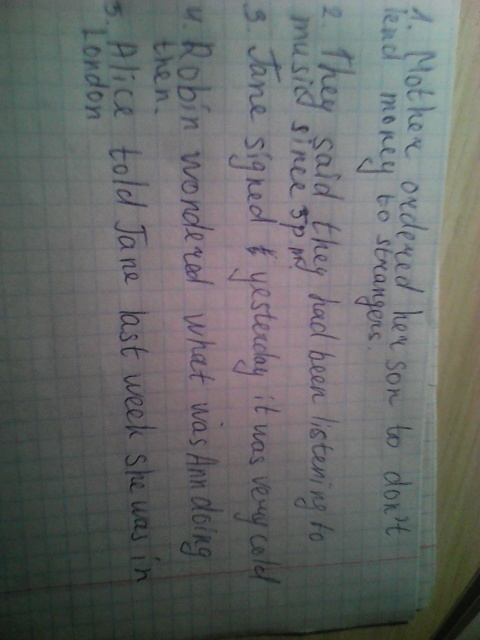 1. Mother ordered her son to don't
lend money to strangers.
2. They said they had been listening to
music since 5 p.m.
3. Jane signed yesterday it was very cold
4. Robin wondered what was Ann doing
then.
5. Alice told Jane last week she was in
London